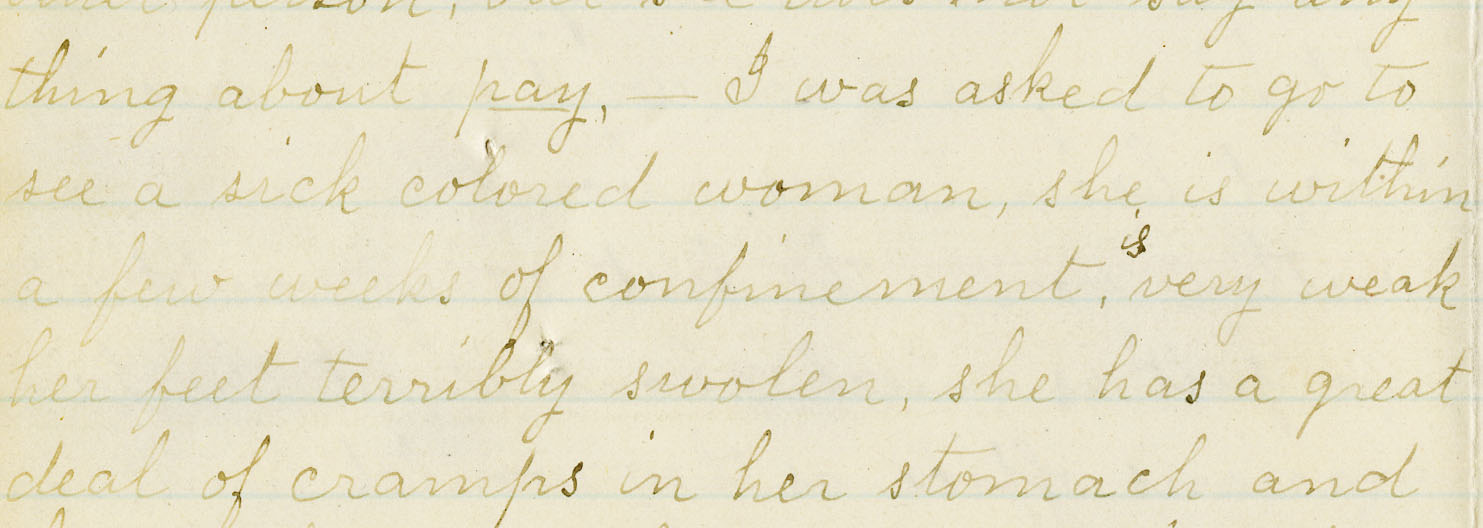 person, but she does not say any
thing about pay, — I was asked to go to
see a sick colored woman, she is within
a few weeks of confinement, is very weak
her feet terribly swolen, she has a great
deal of cramps in her stomach and